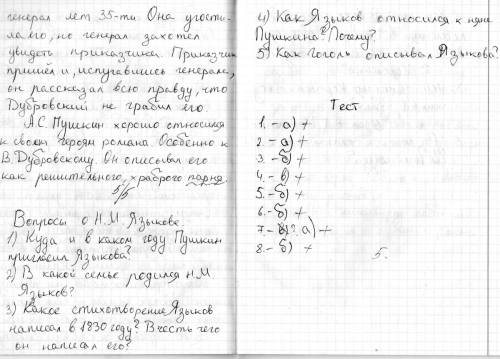 генерал лет 35-ти. Она угости-
ла его, но генерал захотел
увидеть приказчика. Приказчик
пришёл и, испугавшись генерала,
он рассказал всю правду, что
Дубровский не грабил его.
А.С. Пушкин хорошо относился
к своим героям романа. Особенно к
В. Дубровскому. Он описывал его
как решительного, храброго парня.
5/5
Вопросы о Н.М. Языкове.
1) Куда и в каком году Пушкин
пригласил Языкова?
2) В какой семье родился Н.М.
Языков?
3) Какое стихотворение Языков
написал в 1830 году? В честь чего
он написал его?
4) Как Языков относился к няне
Пушкина? Почему?
5) Как Гоголь описывал Языкова?
Тест
1.-а) +
2.-а) +
3.-б) +
4.-в) +
5.-б) +
6.-б) +
7-в)? а) +
8.-б) +
5.